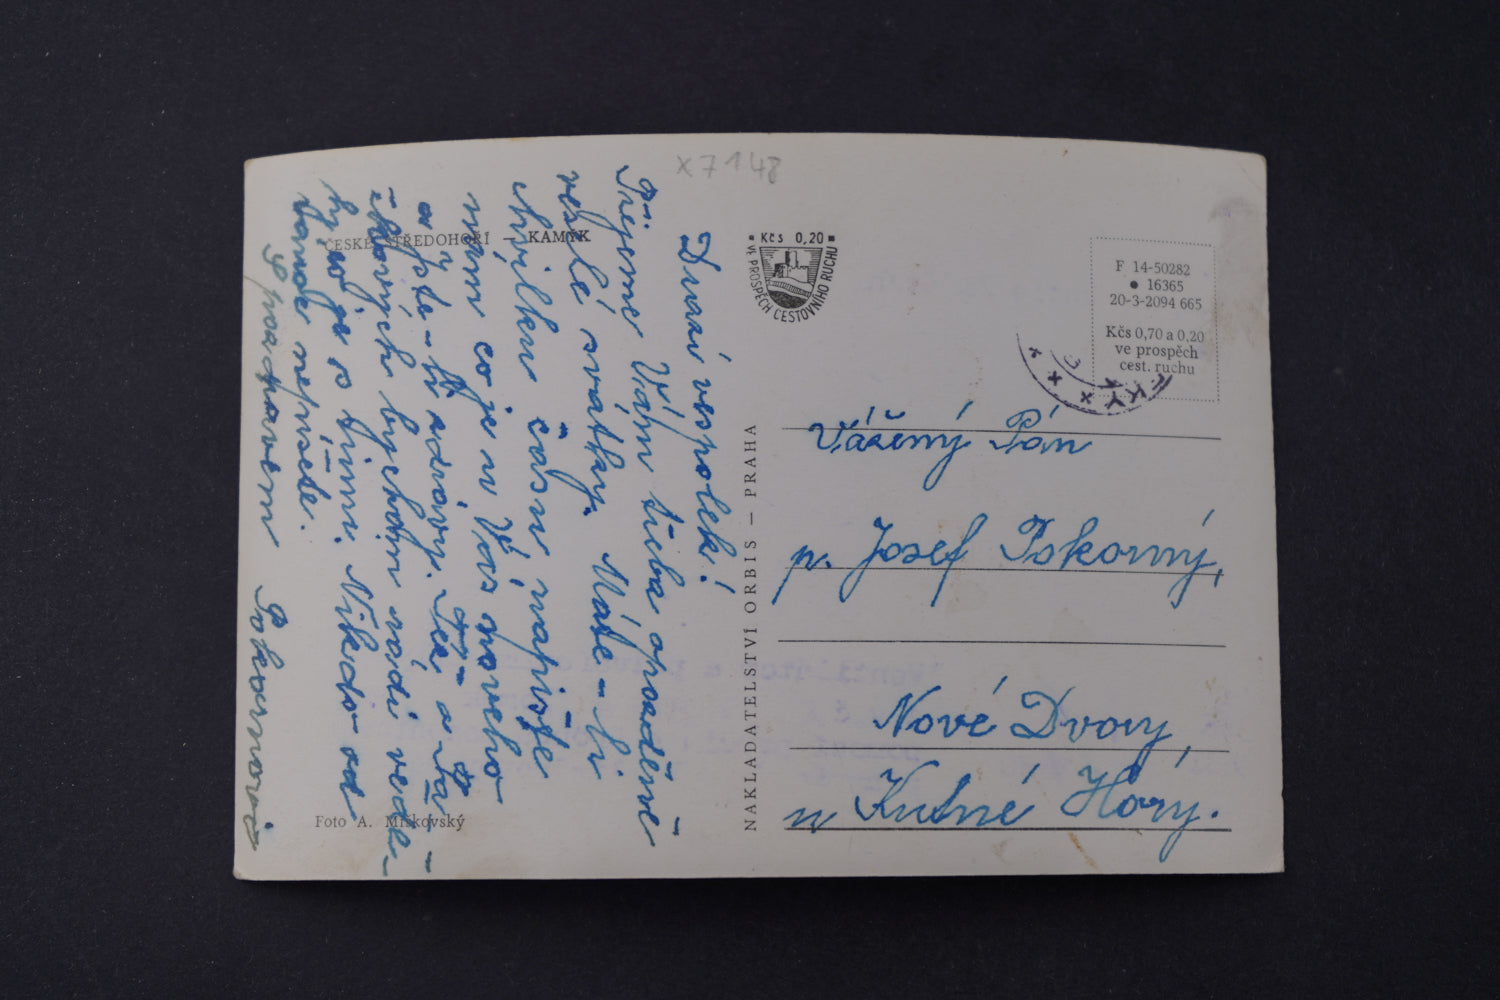 x7148
ČESKÉ STŘEDOHOŘÍ – KAMÝK
Drazí vespolek!
Přejeme Vám třeba opozděně
veselé svátky. Máte-li
chvilku času napište
nám co je u Vás nového
a jste-li zdrávy. Též o Tá-
-borských bychom rádi vědě-
li, co je s nimi. Nikdo od
tamos nepíše.
S pozdravem Pokornovi
Foto A. Miškovský
NAKLADATELSTVÍ ORBIS — PRAHA
Kčs 0,20
VE PROSPĚCH CESTOVNÍHO RUCHU
F 14-50282
16365
20-3-2094 665
Kčs 0,70 a 0,20
ve prospěch
cest. ruchu
Vážený Pán
p. Josef Pokorný,
Nové Dvory,
u Kutné Hory.